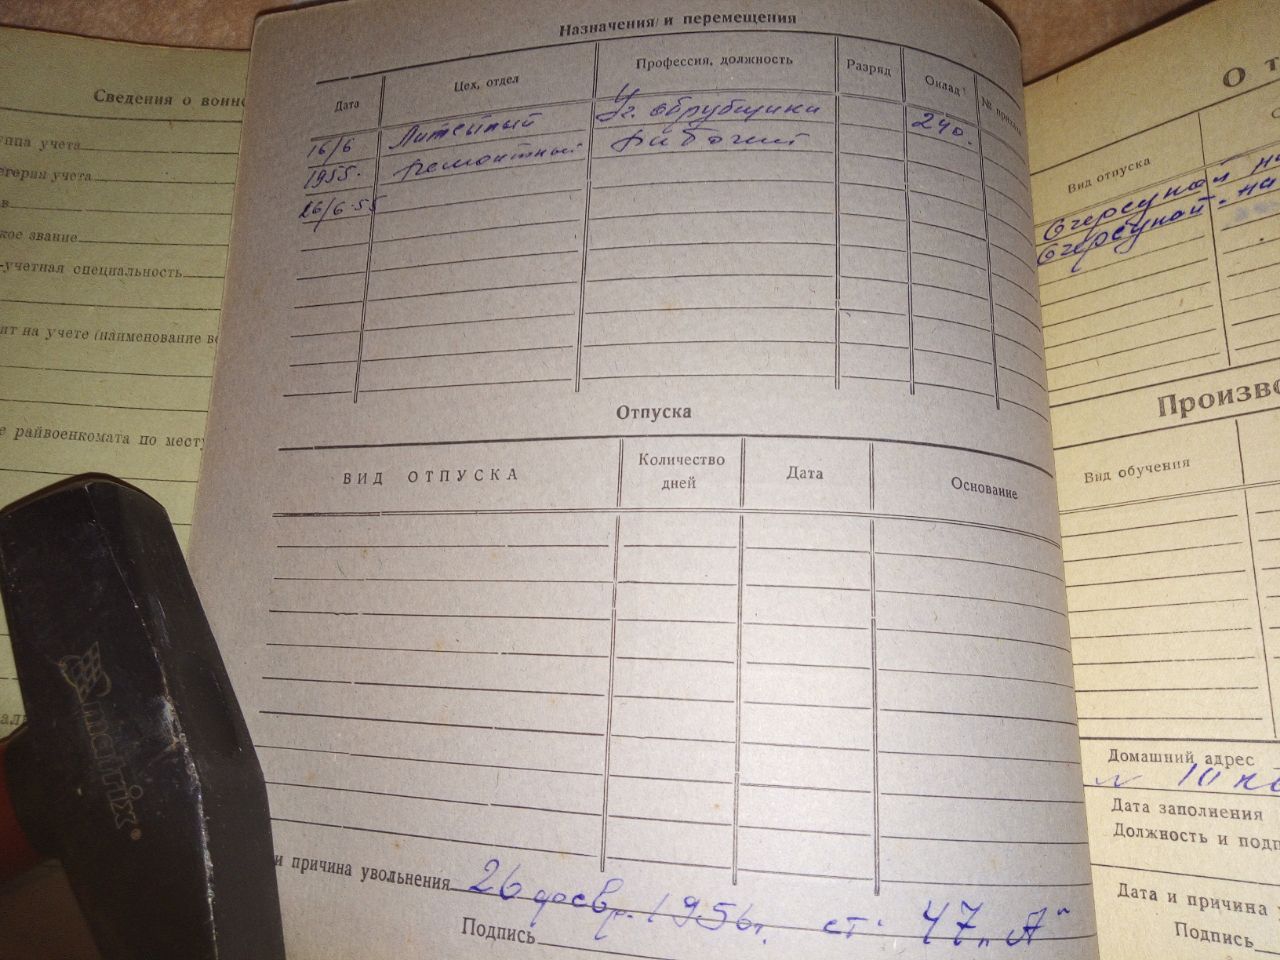 Сведения о воинс
уппа учета
егория учета
в
кое звание
-учетная специальность
ит на учете (наименование во
е райвоенкомата по месту
Назначения и перемещения
Дата
Цех, отдел
Профессия, должность
Разряд
Оклад
№ приказа
16/6 Литейный Уч. обрубщика 240.
1955. ремонтный рабочий
26/6-55
Отпуска
ВИД ОТПУСКА
Количество
дней
Дата
Основание
и причина увольнения 26 февр. 1956г. ст. 47 п "А"
Подпись
О т
Вид отпуска
Очередной
Очередной
Произво
Вид обучения
Домашний адрес
Дата заполнения
Должность и подп
Дата и причина у
Подпись
matrix®